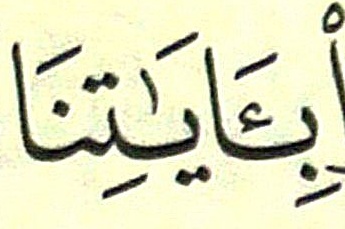 بِـَٔايَـٰتِنَا